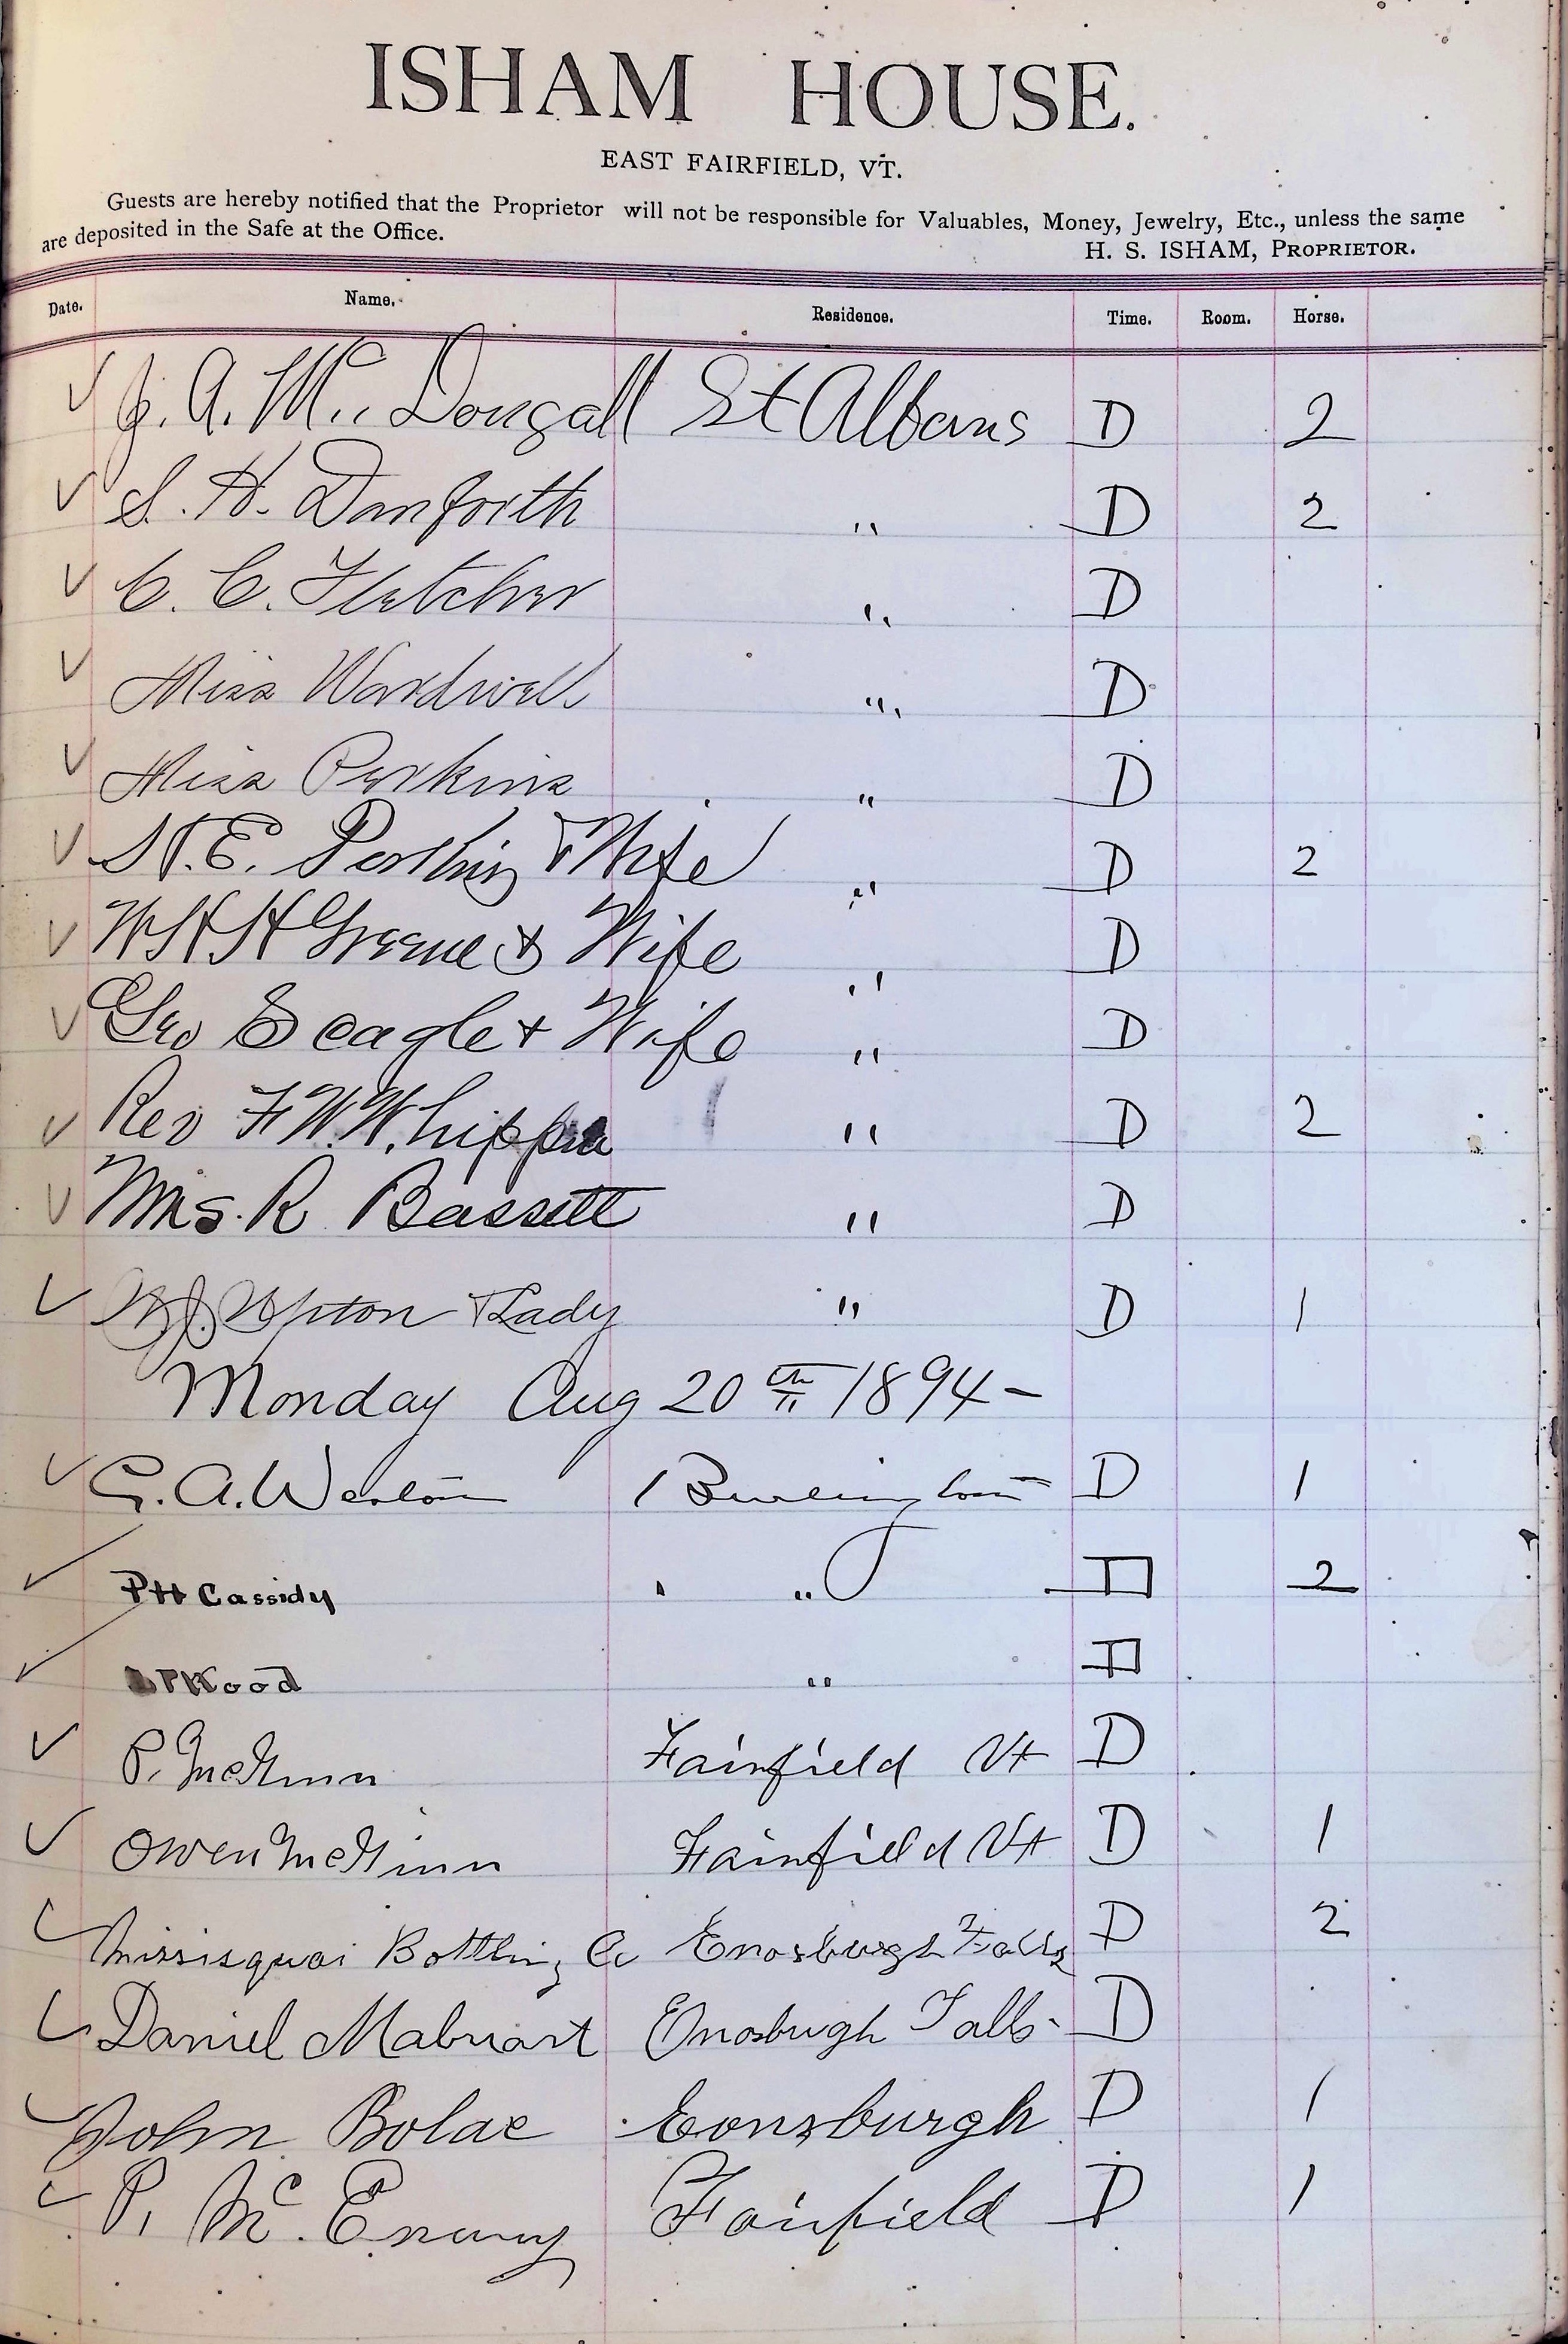 ISHAM HOUSE.
EAST FAIRFIELD, VT.
Guests are hereby notified that the Proprietor will not be responsible for Valuables, Money, Jewelry, Etc., unless the same
are deposited in the Safe at the Office.
H. S. ISHAM, PROPRIETOR.
Date. Name. Residence. Time. Room. Horse.
✓ J. A. Mc Dougall St Albans D 2
✓ S. H. Danforth " D 2
✓ C. C. Fletcher " D
✓ Miss Wardwell " D
✓ Miss Perkins " D
✓ H. E. Perkins & Wife " D 2
✓ W H H Greene & Wife " D
✓ Geo Beagle + Wife " D
✓ Rev F. W. Whippen " D 2
✓ Mrs. R Bassett " D
✓ W J. Upton & Lady " D 1
Monday Aug 20th 1894 -
✓ G. A. Weston Burlington D 1
✓ PH Cassidy " D 2
✓ Wood " D
✓ P. McGinn Fairfield Vt D
✓ Owen McGinn Fairfield Vt D 1
✓ Missisquoi Bottling Co Enosburgh Falls D 2
✓ Daniel Mabuart Enosburgh Falls D
✓ John Bolac Eonsburgh D 1
✓ P. Mc Enany Fairfield D 1